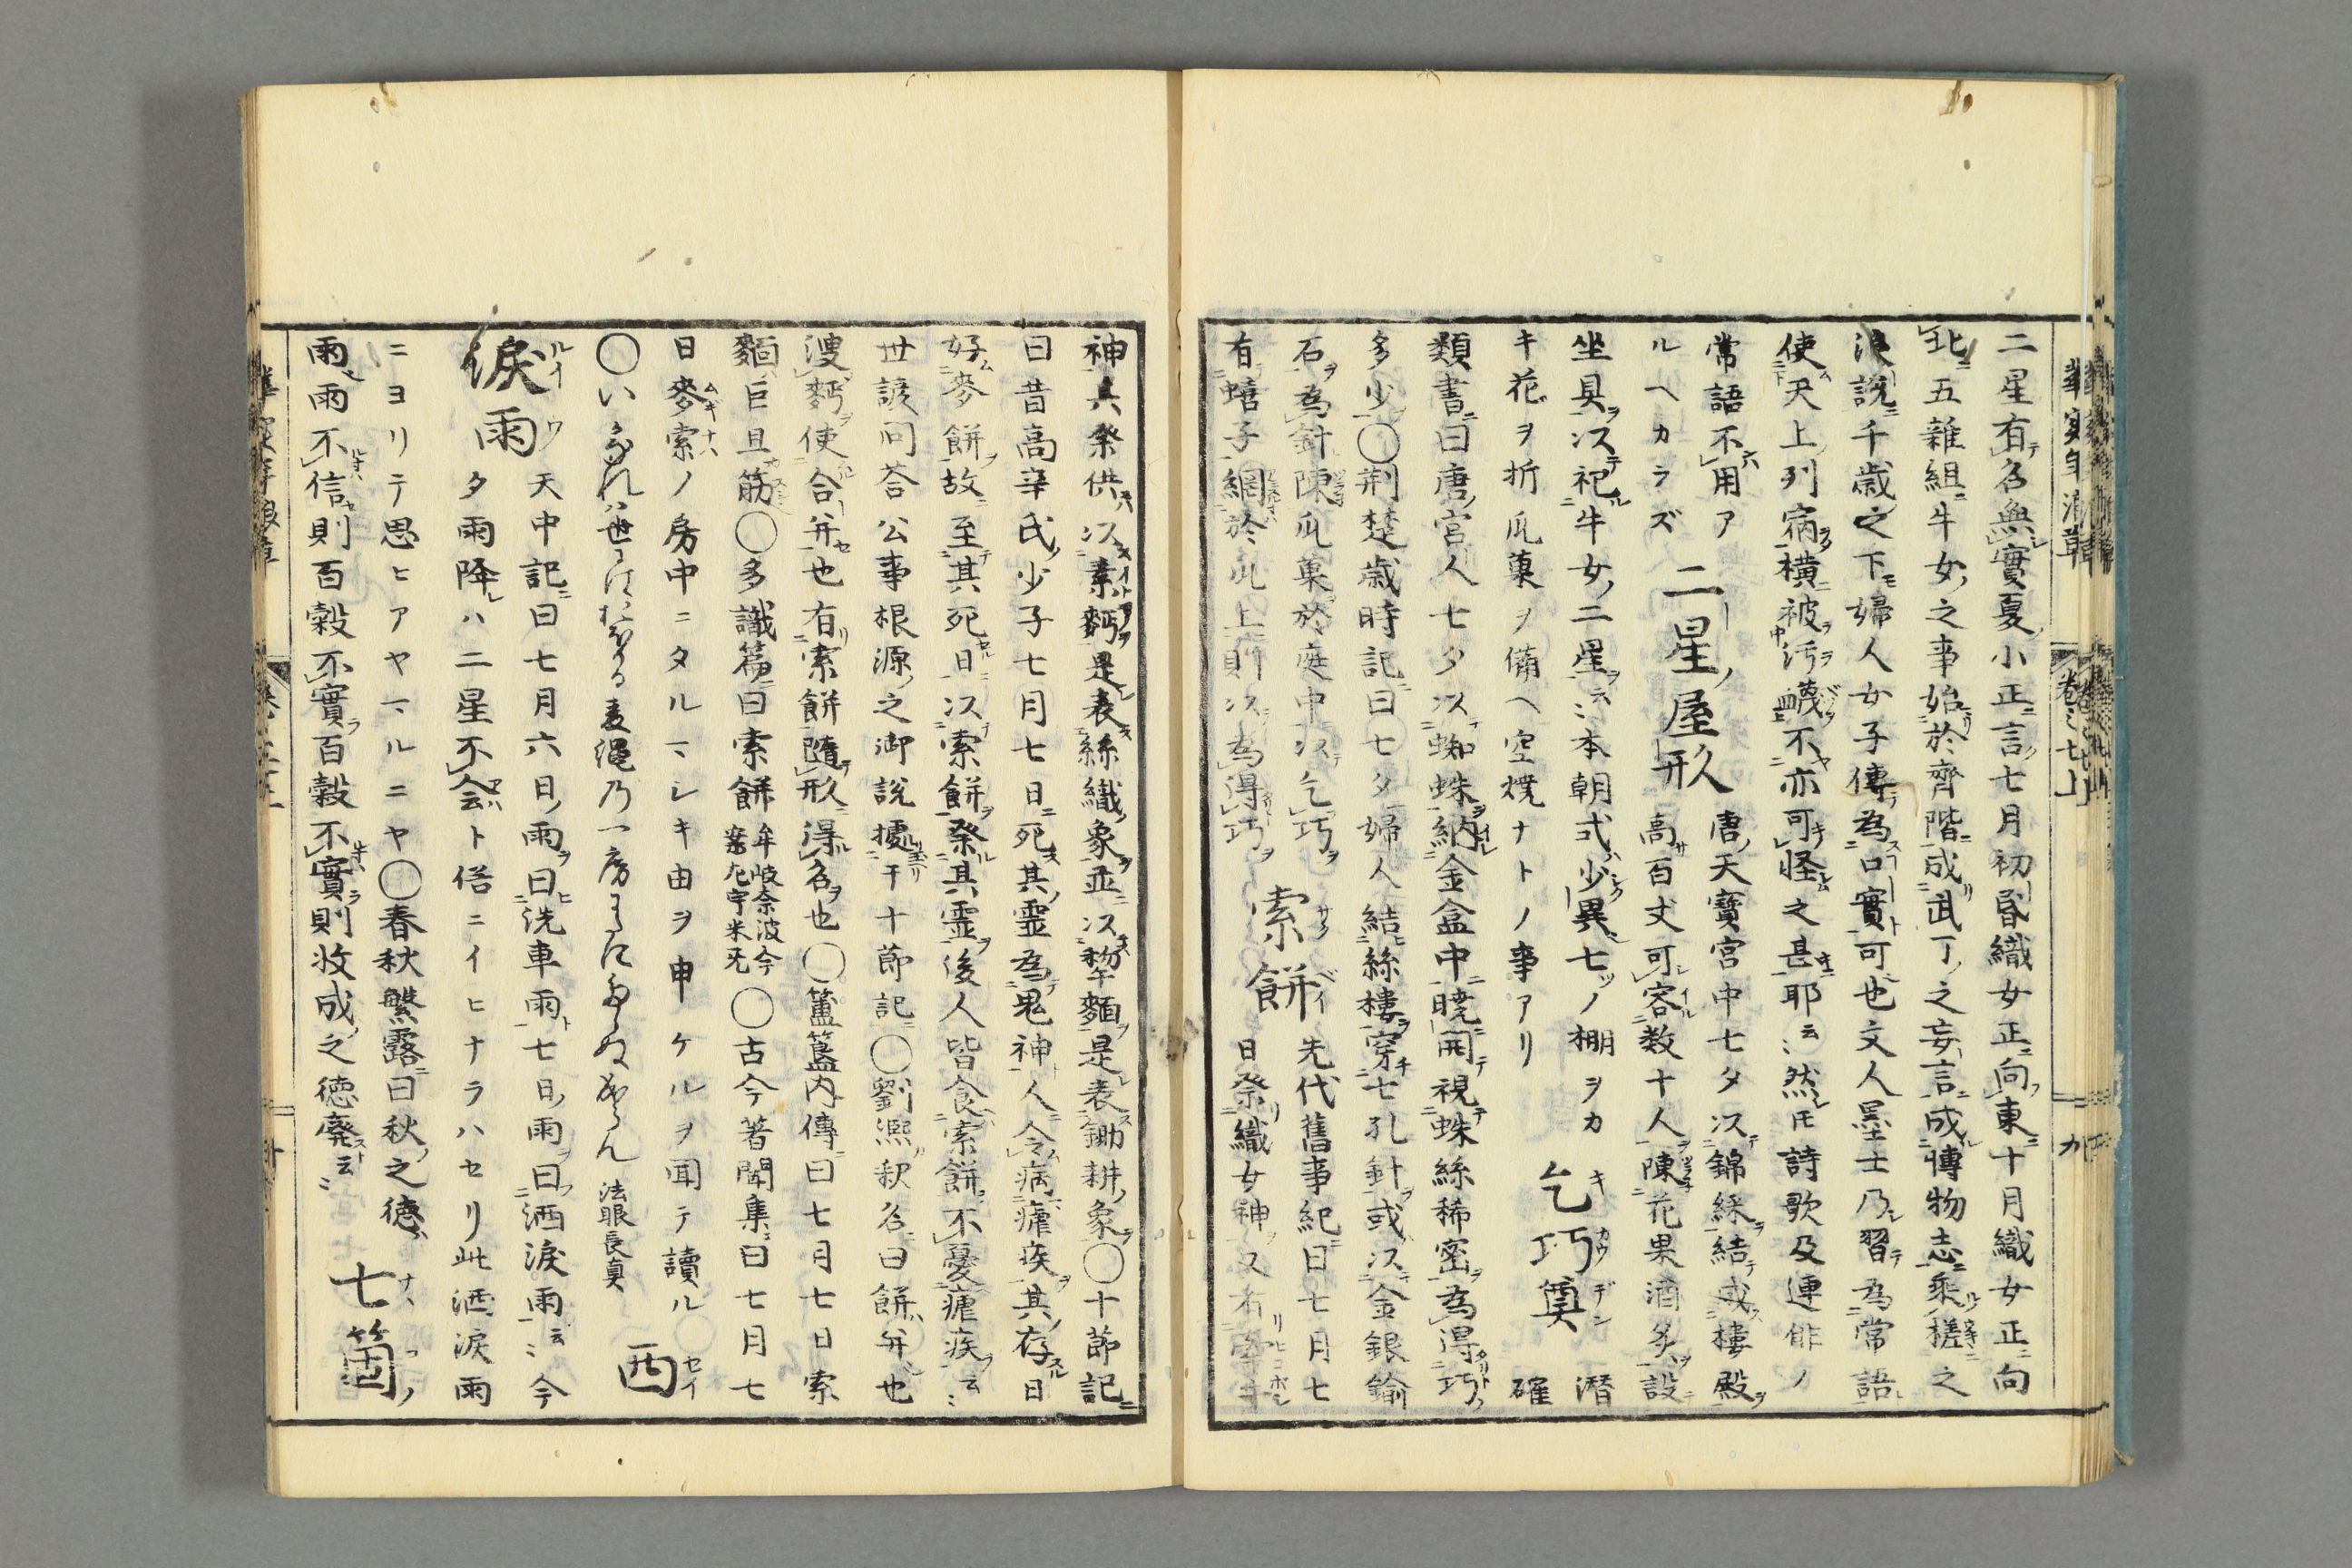 華実年浪草
卷之七上
九
二星有名無實夏小正言七月初昏織女正向東十月織女正向
北五雜組牛女之事始於齊階成武丁之妄言成博物志乘槎之
浪説千歳之下婦人女子傳為口實可也文人墨士乃習為常語
使天上列宿横被汚衊不亦可怪之甚耶云云然モ詩歌及連俳ノ
常語不用アルヘカラズ
二星ノ屋形
唐ノ天寶宮中七夕以錦綵結成樓殿
高百丈可容數十人陳花果酒炙設
坐具以祀牛女二星云云本朝式少異七ツノ棚ヲカ
キ花ヲ折瓜菓ヲ備ヘ空燒ナトノ事アリ
乞巧奠
潜確
類書曰唐宮人七夕以蜘蛛納金盒中曉開視蛛絲稀密為得巧
多少〇荊楚歳時記曰七夕婦人結絲樓穿七孔針或以金銀鍮
石為針陳瓜菓於庭中以乞巧
有蟢子網於瓜上則以為得巧
索餅
先代舊事紀曰七月七
日祭織女神又有牽牛
神其祭供以素麪是表絲織象並以䅣麵是表鋤耕象〇十節記
曰昔高辛氏少子七月七日死其靈為鬼神人令病瘧疾其存日
好麥餅故至其死日以索餅祭其霊後人皆食索餅不憂瘧疾云云
世諺問荅公事根源之御説據于十節記〇劉熈釈名曰餅并也
溲麪使合并也有索餅隨形得名也〇簠簋内傳曰七月七日索
麵巨旦筋〇多識篇曰索餅牟岐奈波今案左宇米无〇古今著聞集曰七月七
日麥索ノ房中ニタルマシキ由ヲ申ケルヲ聞テ讀ル
法眼長真
洒涙雨
天中記曰七月六日雨曰洗車雨七日雨曰洒涙雨云云今
夕雨降レハ二星不会ト俗ニイヒナラハセリ此洒涙雨
ニヨリテ思ヒアヤマルニヤ〇春秋繁露曰秋之徳
雨雨不信則百穀不實百穀不實則收成之徳廢云云
七箇